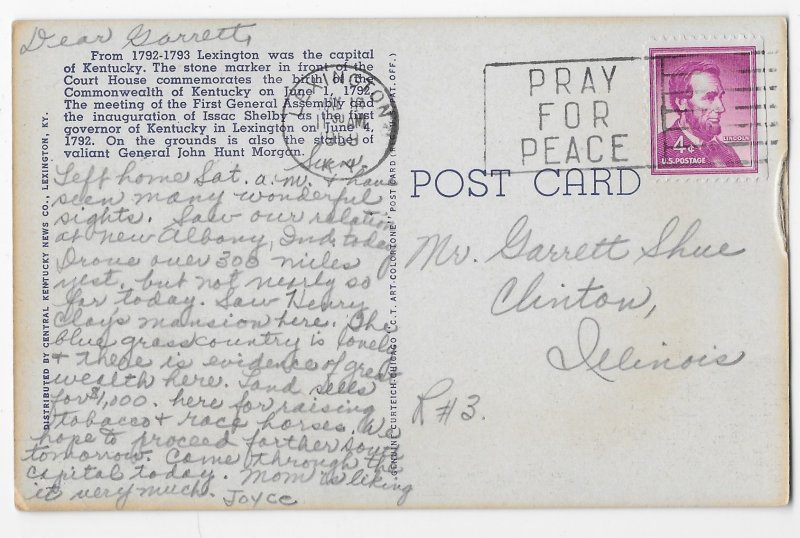 Dear Garrett,
From 1792-1793 Lexington was the capital
of Kentucky. The stone marker in front of the
Court House commemorates the birth of the
Commonwealth of Kentucky on June 1, 1792.
The meeting of the First General Assembly and
the inauguration of Issac Shelby as the first
governor of Kentucky in Lexington on June 4,
1792. On the grounds is also the statue of
valiant General John Hunt Morgan.
Left home Sat. a.m. & have
seen many wonderful
sights. Saw our relation
at New Albany, Ind. today
Drove over 300 miles
yest. but not nearly so
far today. Saw Henry
Clay's mansion here. The
blue grass country is lovely
& there is evidence of great
wealth here. Land sells
for $1,000. here for raising
tobacco & race horses. We
hope to proceed farther south
tomorrow. Came through the
capital today. Mom is liking
it very much. Joyce
DISTRIBUTED BY CENTRAL KENTUCKY NEWS CO., LEXINGTON, KY.
GENUINE CURTEICH-CHICAGO "C.T. ART-COLORTONE" POST CARD PAT. OFF.)
LEXINGTON
AM
KY.
PRAY
FOR
PEACE
LINCOLN
4¢
U.S. POSTAGE
POST CARD
Mr. Garrett Shue
Clinton,
Illinois
R#3.